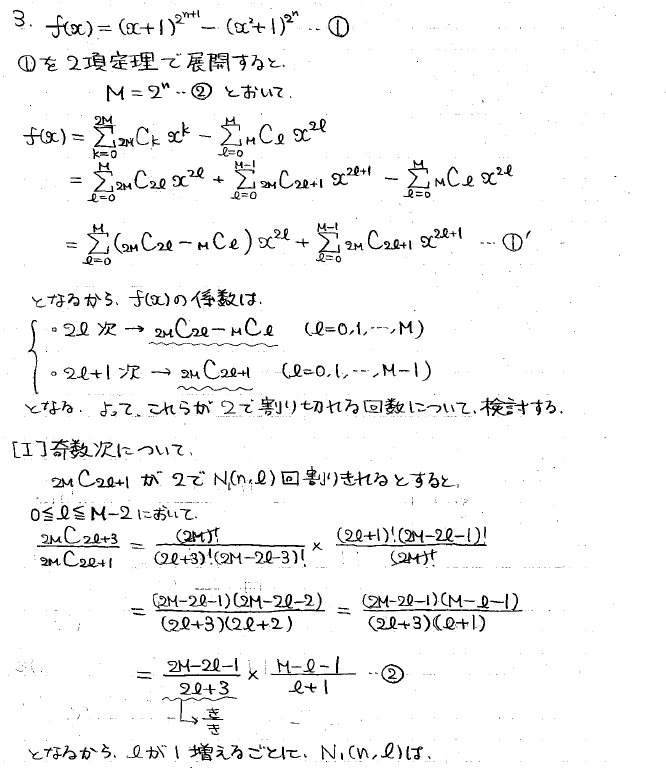 3. f(x) = (x+1)^{2^{n+1}} - (x²+1)^{2^n} … ①
①を2項定理で展開すると、
M = 2^n … ② とおいて、
f(x) = Σ_{k=0}^{2M} {}_{2M}C_k x^k - Σ_{ℓ=0}^{M} {}_M C_ℓ x^{2ℓ}
= Σ_{ℓ=0}^{M} {}_{2M}C_{2ℓ} x^{2ℓ} + Σ_{ℓ=0}^{M-1} {}_{2M}C_{2ℓ+1} x^{2ℓ+1} - Σ_{ℓ=0}^{M} {}_M C_ℓ x^{2ℓ}
= Σ_{ℓ=0}^{M} ({}_{2M}C_{2ℓ} - {}_M C_ℓ) x^{2ℓ} + Σ_{ℓ=0}^{M-1} {}_{2M}C_{2ℓ+1} x^{2ℓ+1} … ①'
となるから、f(x)の係数は、
{ ∘ 2ℓ 次 → {}_{2M}C_{2ℓ} - {}_M C_ℓ (ℓ=0,1,…,M)
∘ 2ℓ+1 次 → {}_{2M}C_{2ℓ+1} (ℓ=0,1,…,M-1)
となる。よって、これらが2で割り切れる回数について、検討する。
[I] 奇数次について、
{}_{2M}C_{2ℓ+1} が 2で N₁(n,ℓ) 回割りきれるとすると、
0≦ℓ≦M-2 において、
{}_{2M}C_{2ℓ+3} / {}_{2M}C_{2ℓ+1} = (2M)! / (2ℓ+3)!(2M-2ℓ-3)! × (2ℓ+1)!(2M-2ℓ-1)! / (2M)!
= (2M-2ℓ-1)(2M-2ℓ-2) / (2ℓ+3)(2ℓ+2) = (2M-2ℓ-1)(M-ℓ-1) / (2ℓ+3)(ℓ+1)
= (2M-2ℓ-1) / (2ℓ+3) × (M-ℓ-1) / (ℓ+1) … ②
→ き/き
となるから、ℓが1増えるごとに、N₁(n,ℓ)は、